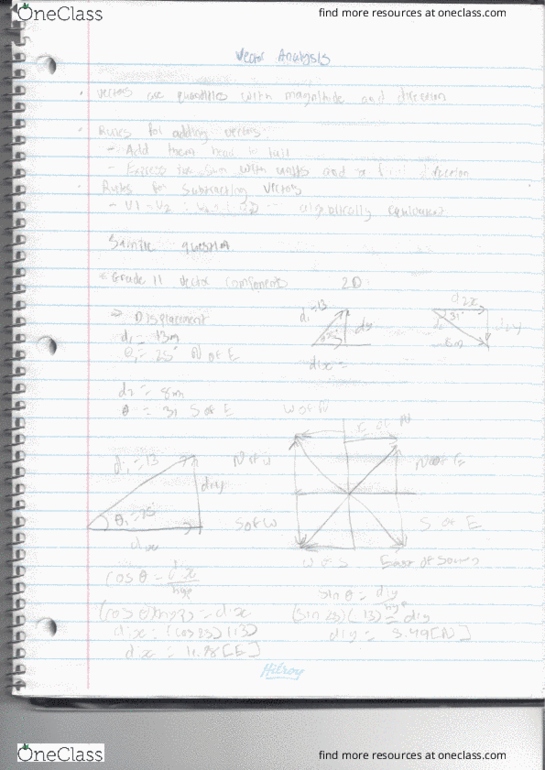 OneClass
find more resources at oneclass.com
Vector Analysis
• vectors are quantities with magnitude and direction
• Rules for adding vectors:
- Add them head to tail
- Express the sum with units and a direction
• Rules for subtracting vectors
- V1 - V2 algebraically equivalent
Sample question
Grade 11 vector components 2D
⇒ Displacement
d1 = 13m
θ1 = 25° N of E
d1 = 13
dy
25°
d1x =
d2x
31°
d2y
8m
d2 = 8m
θ = 31 S of E
W of N
E of N
N of W
N of E
S of W
S of E
W of S
East of South
d1 = 13
d1y
θ1 = 25°
d1x
cos θ = d1x / hyp
sin θ = d1y / hyp
(cos θ) hyp = d1x
(sin 25)(13) = d1y
d1x = (cos 25)(13)
d1y = 5.49 [N]
d1x = 11.78 [E]
Hilroy
OneClass
find more resources at oneclass.com